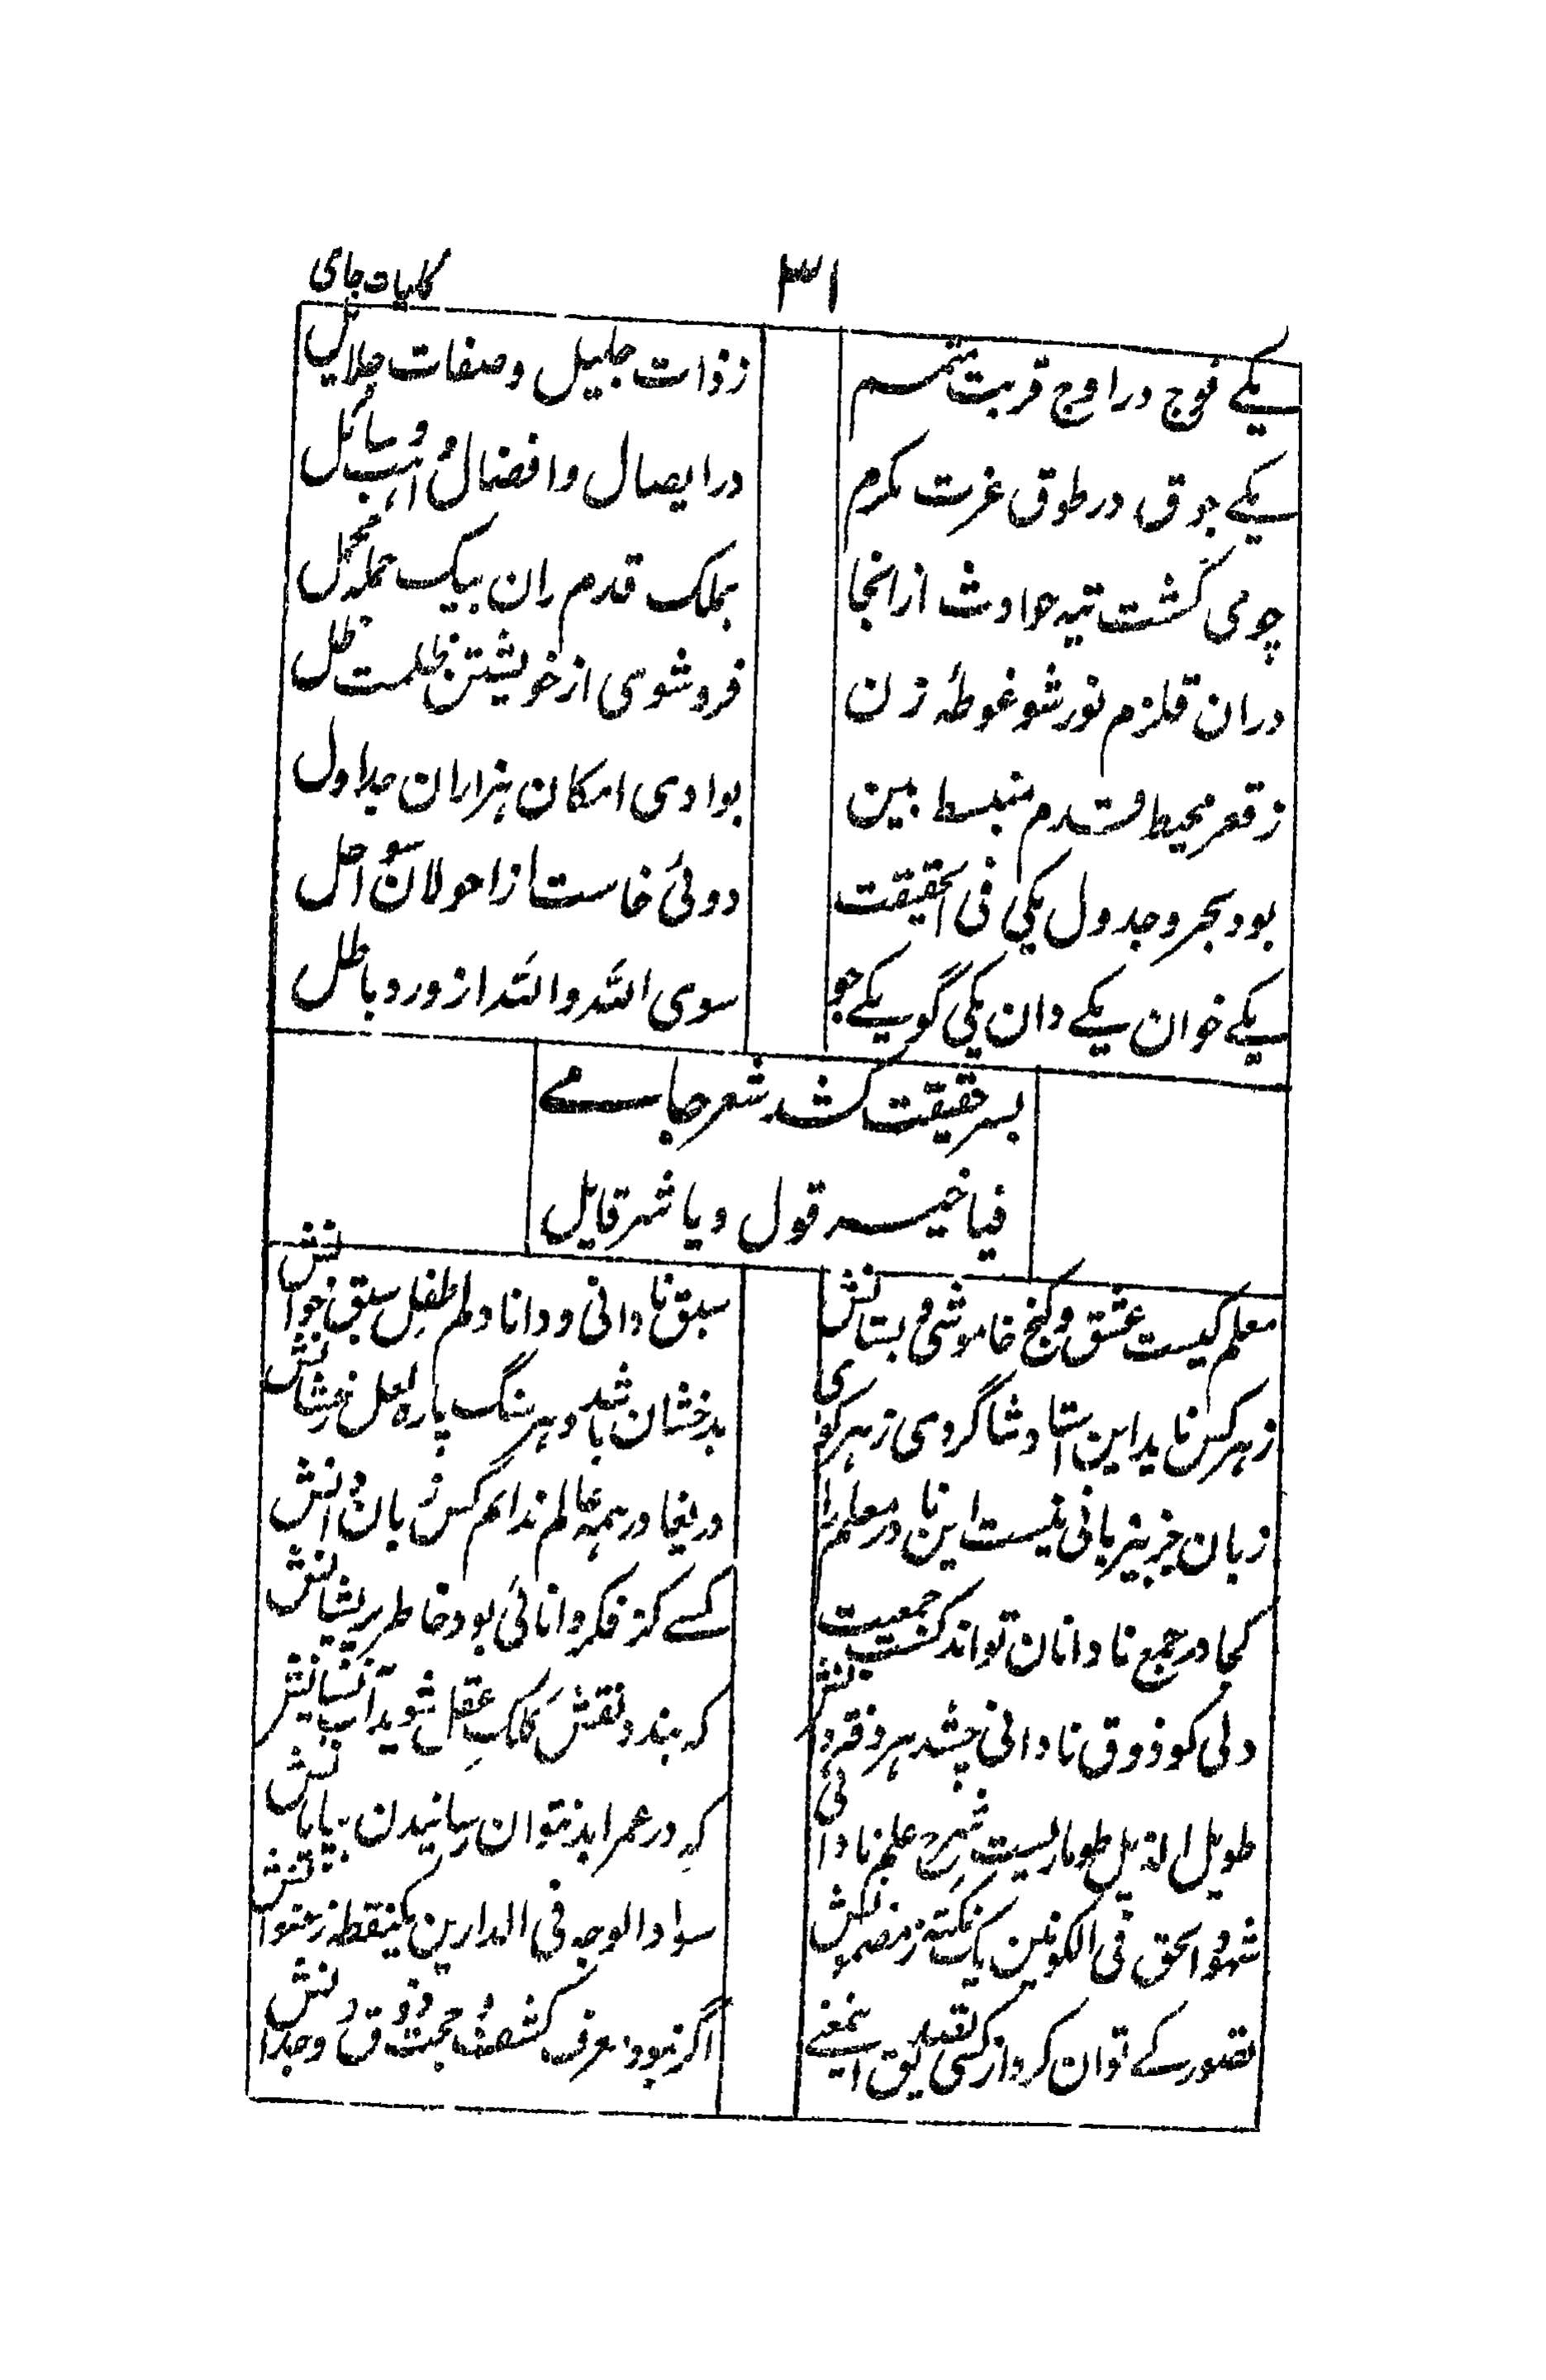 ۳۱
کلیات جامی
یکے فوج در اوج قربت متمم
ز ذات جلیل و صفات جلایل
یکے جوق در طوق عزت مکرم
در ایصال و افضال و اہب وسائل
چو می گشت تیہ حوادث ازانجا
بملک قدم ران بیک حملہ محمل
دران قلزم نور شو غوطہ زن
فرو شوی از خویشتن ظلمت ظل
ز قعر محیط قدم منبسط بین
بوادی امکان ہزاران جداول
بود بحر و جدول یکی فی الحقیقت
دوئی خاست از احولان سواحل
یکے خوان یکے دان یکی گو یکے جو
سوی اللہ واللہ از ور و باطل
بسر حقیقت کشد شعر جامے
فیا خیر قول و یا شہر قایل
معلم کیست عشق و کنج خاموشی دبستانش
سبق نادانی و دانا دلم طفل سبق خوانش
ز ہر کس ناید این استاد شاگردی ز ہر کوی
بدخشان باشد و ہر سنگ پارہ لعل رخشانش
زبان جز بیزبانی نیست این نادر معلم را
دریغا در ہمہ عالم ندانم کس زبان دانش
کجا در جمع نادانان تواند کسب جمعیت
کسے کز فکر دانائی بود خاطر پریشانش
دلی کو ذوق نادانی چشد ہر دفتر دانش
کہ بندد نقش کلک عقل شوید آب نسیانش
طویل الذیل طوماریست شرح علم نادانی
کہ در عمر ابد نتوان رسانیدن بپایانش
شہود الحق فی الکونین یک نکتہ ز مضمونش
سواد الوجہ فی الدارین یکنقطہ ز عنوانش
تصور کے توان کرد از کسی تصدیق اینمعنے
اگر نبود معرف کشف و حجت ذوق و وجدانش